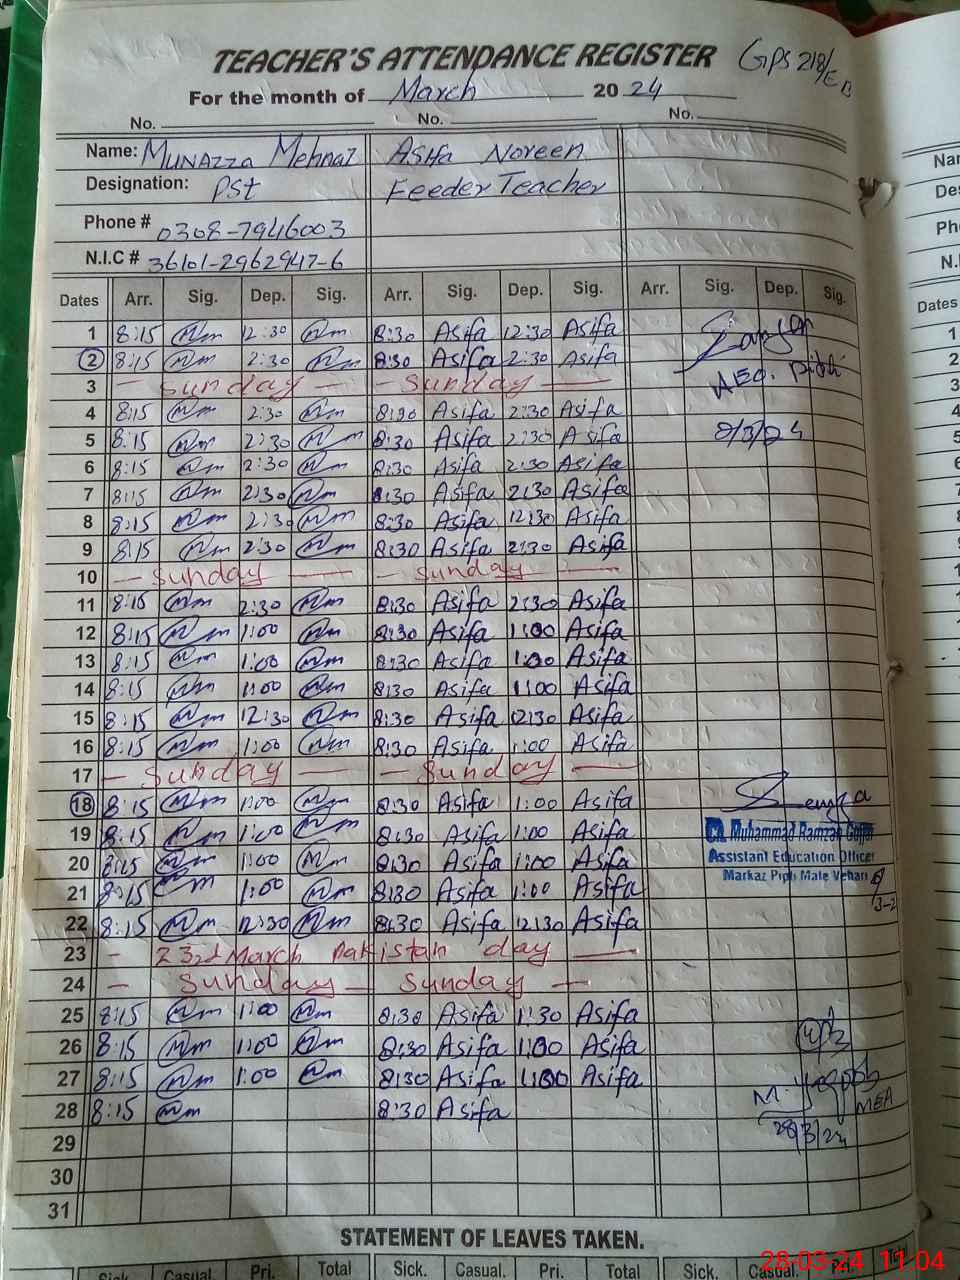 TEACHER'S ATTENDANCE REGISTER GPS 218/EB
For the month of March 2024
No. No. No.
Name: Munazza Mehnaz Asifa Noreen
Designation: PST Feeder Teacher
Phone # 0308-7946003
N.I.C # 36101-2962947-6
Dates Arr. Sig. Dep. Sig. Arr. Sig. Dep. Sig. Arr. Sig. Dep. Sig.
1 8:15 Mm 12:30 Mm 8:30 Asifa 12:30 Asifa
2 8:15 Mm 2:30 Mm 8:30 Asifa 2:30 Asifa
3 - Sunday - - Sunday - AEO.
4 8:15 Mm 2:30 Mm 8:30 Asifa 2:30 Asifa
5 8:15 Mm 2:30 Mm 8:30 Asifa 2:30 Asifa /3/24
6 8:15 Mm 2:30 Mm 8:30 Asifa 2:30 Asifa
7 8:15 Mm 2:30 Mm 8:30 Asifa 2:30 Asifa
8 8:15 Mm 2:30 Mm 8:30 Asifa 12:30 Asifa
9 8:15 Mm 2:30 Mm 8:30 Asifa 2:30 Asifa
10 - Sunday - - Sunday -
11 8:15 Mm 2:30 Mm 8:30 Asifa 2:30 Asifa
12 8:15 Mm 1:00 Mm 8:30 Asifa 1:00 Asifa
13 8:15 Mm 1:00 Mm 8:30 Asifa 1:00 Asifa
14 8:15 Mm 1:00 Mm 8:30 Asifa 1:00 Asifa
15 8:15 Mm 12:30 Mm 8:30 Asifa 12:30 Asifa
16 8:15 Mm 1:00 Mm 8:30 Asifa 1:00 Asifa
17 - Sunday - - Sunday -
18 8:15 Mm 1:00 Mm 8:30 Asifa 1:00 Asifa
19 8:15 Mm 1:00 Mm 8:30 Asifa 1:00 Asifa Ch. Muhammad Ramzan Gujjar
20 8:15 Mm 1:00 Mm 8:30 Asifa 1:00 Asifa Assistant Education Officer
21 8:15 Mm 1:00 Mm 8:30 Asifa 1:00 Asifa Markaz Pipli Male Vehari
22 8:15 Mm 12:30 Mm 8:30 Asifa 12:30 Asifa
23 - 23rd March Pakistan day -
24 - Sunday - Sunday -
25 8:15 Mm 1:00 Mm 8:30 Asifa 1:30 Asifa
26 8:15 Mm 1:00 Mm 8:30 Asifa 1:00 Asifa
27 8:15 Mm 1:00 Mm 8:30 Asifa 1:00 Asifa
28 8:15 Mm 8:30 Asifa MEA
29 28/3/24
30
31
STATEMENT OF LEAVES TAKEN.
Sick. Casual. Pri. Total Sick. Casual. Pri. Total Sick. Casual.
28-03-24 11:04